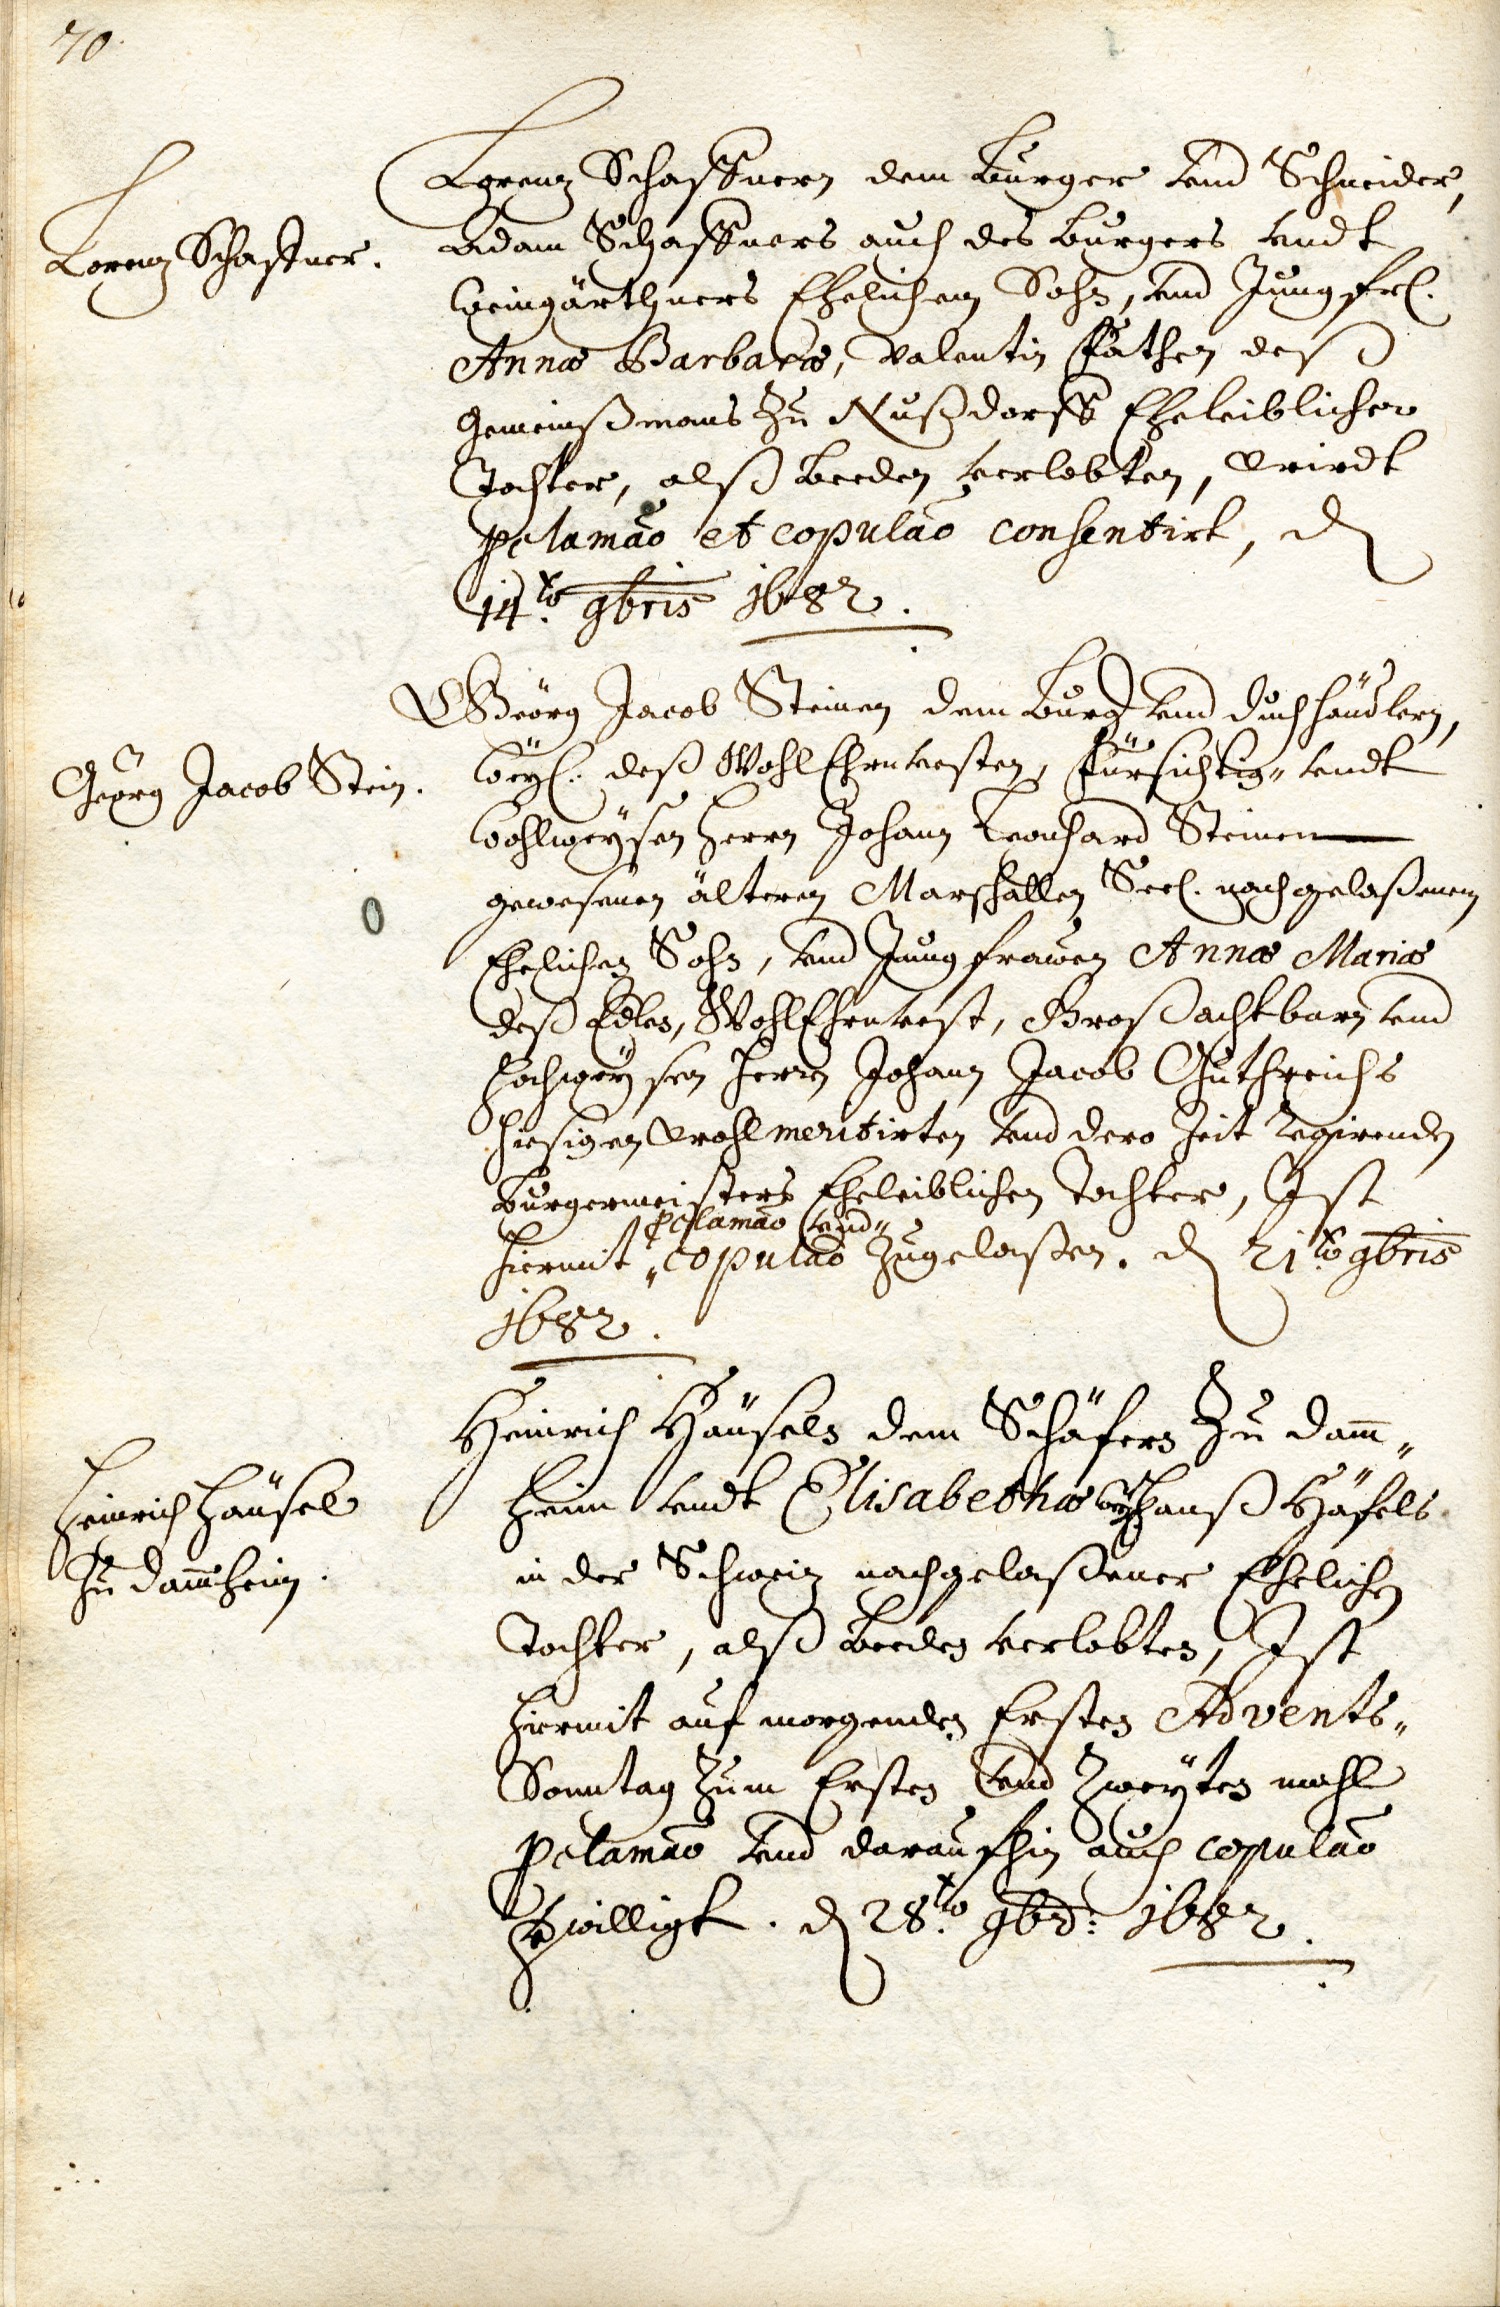 70.
Lorenz Schaffner.
Lorenz Schaffnern dem Burger vnd Schneider,
Adam Schaffners auch des Burgers vndt
Weingärthners Ehelichem Sohn, vnd Jungfrl.
Annæ Barbaræ, Valentin Fathen deß
Gemeinßmans Zu Nußdorff Eheleiblicher
Tochter, alß beeden verlobten, wirdt
pclamão et copulão consentirt, d
14.to 9bris 1682.
Geörg Jacob Stein.
Geörg Jacob Steinen dem Burg. vnd Duchhändlern,
Weyl. deß WohlEhrnvesten, Fürsichtig„ vndt
Wohlweysen Herrn Johann Leonhard Steinen
gewesenen älteren Marschallen Seel. nachgelaßenem
Ehelichen Sohn, vnd Jungfrawen Annæ Mariæ
deß Edlen, WohlEhrnvest, Großachtbarn vnd
Hochweysen Herrn Johann Jacob Guthreichs
hiesigen Wohlmeritirten vnd dero Zeit regirenden
Burgermeisters Eheleiblichen Tochter, Ist
pclamão vnd„
hiermit „copulão Zugelaßen. d 21.to 9bris
1682.
Heinrich Häusel
Zu Dammheim.
Heinrich Häuseln dem Schäfern Zu Dam̅„
heim vndt Elisabethæ weyl Hanß Häfels
in der Schweiz nachgelaßener Ehelichen
Tochter, alß beeden verlobten, Ist
hiermit auf morgenden Ersten Advents„
Sonntag Zum Ersten vnd Zweyten mahl
pclamão vnd daraufhin auch copulão
bewilligt. d 28.to 9br: 1682.